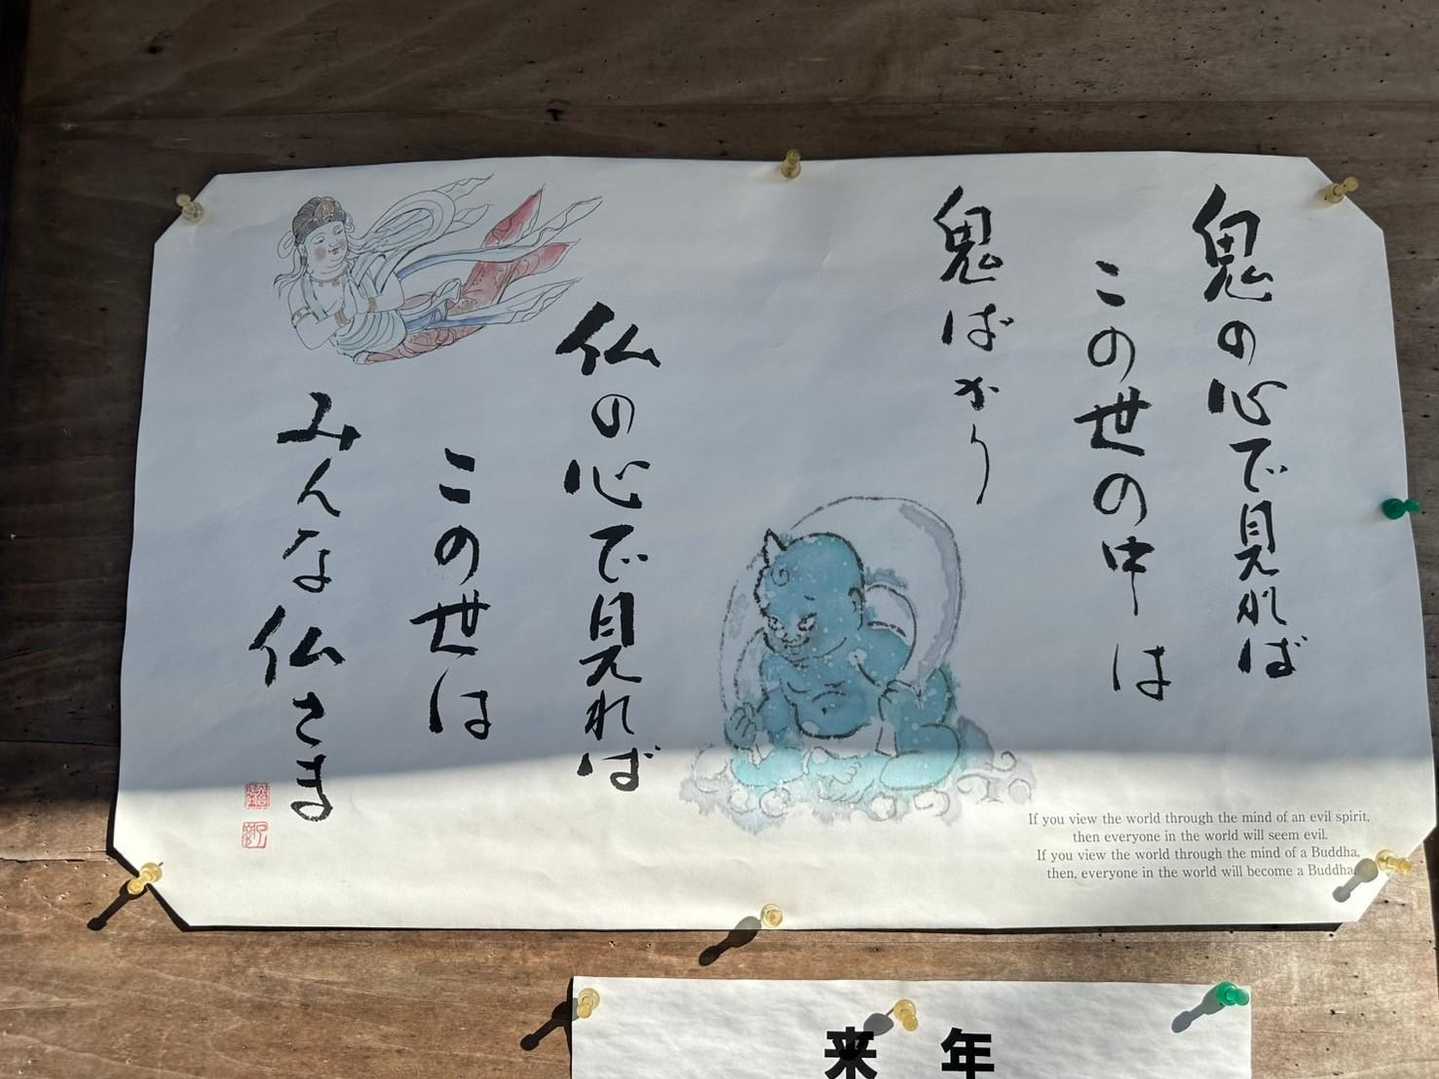 鬼の心で見れば
この世の中は
鬼ばかり
仏の心で見れば
この世は
みんな仏さま
If you view the world through the mind of an evil spirit,
then everyone in the world will seem evil.
If you view the world through the mind of a Buddha,
then, everyone in the world will become a Buddha
来年